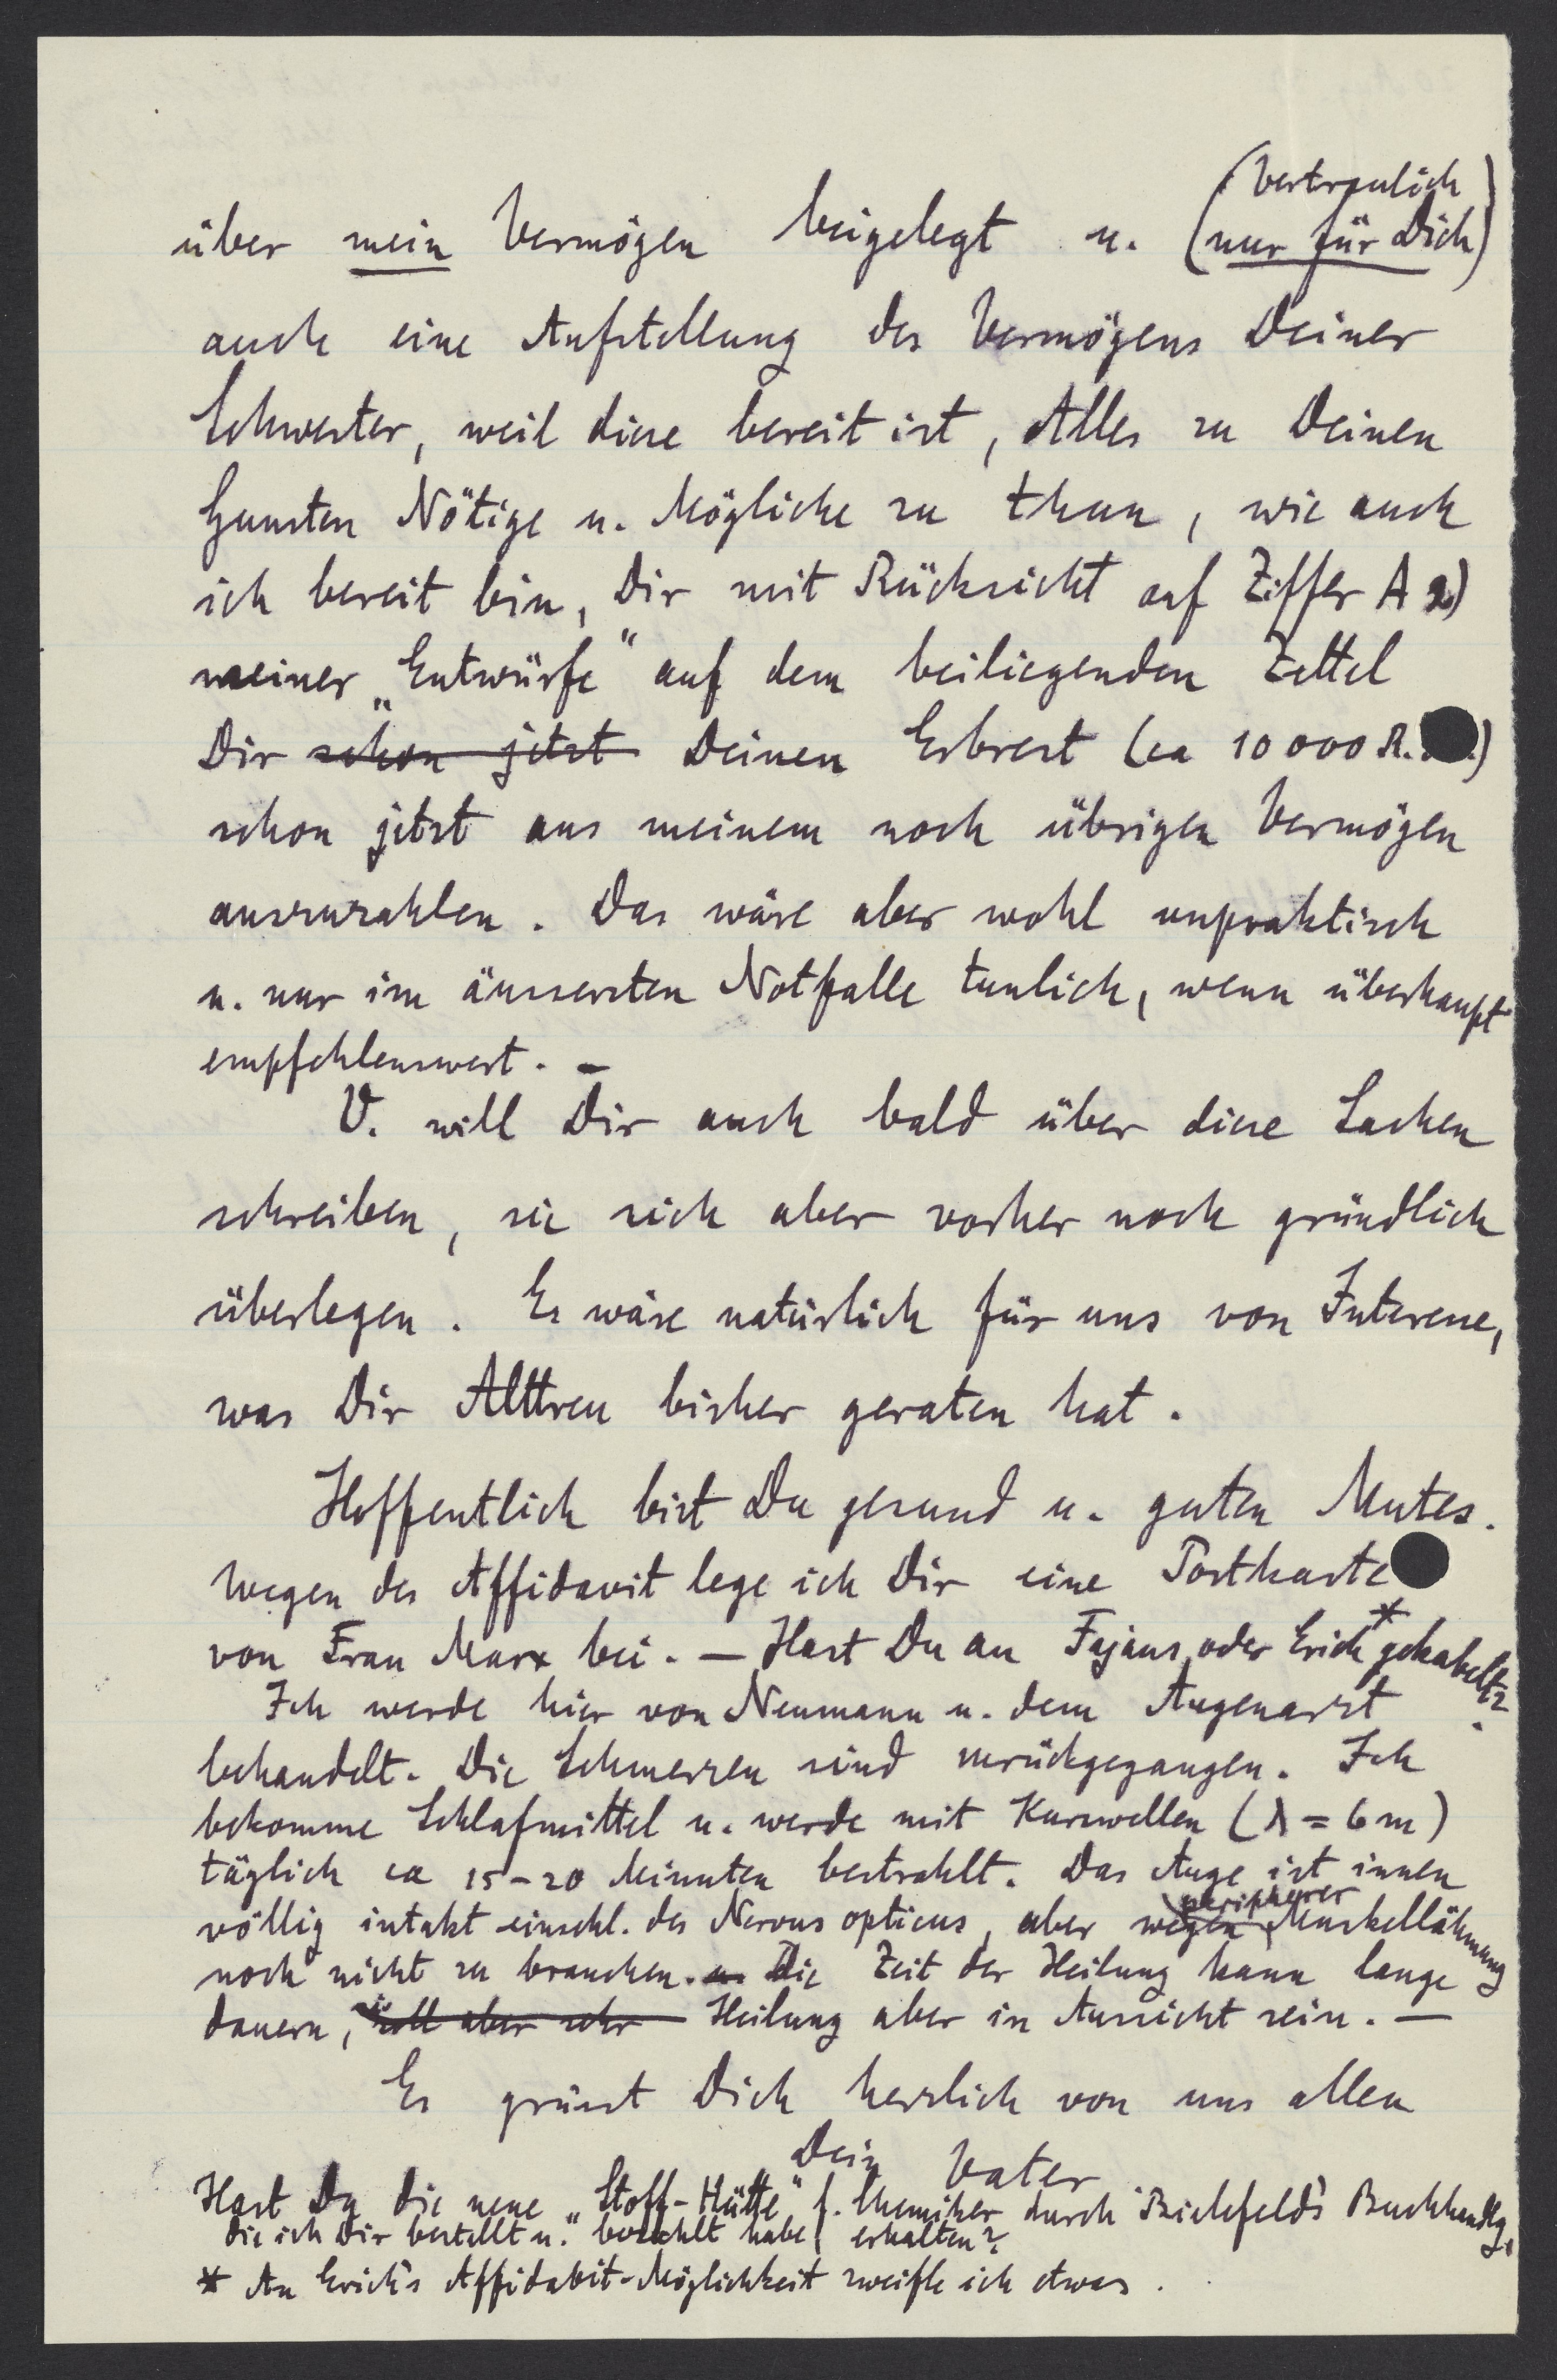 (Vertraulich)
über mein Vermögen beigelegt u. (nur für Dich)
auch eine Aufstellung des Vermögens Deiner
Schwester, weil diese bereit ist, Alles zu Deinen
Gunsten Nötige u. Mögliche zu thun, wie auch
ich bereit bin, Dir mit Rücksicht auf Ziffer A 2)
meiner „Entwürfe" auf dem beiliegenden Zettel
Dir schon jetzt Deinen Erbrest (ca 10 000 R. .)
schon jetzt aus meinem noch übrigen Vermögen
auszuzahlen. Das wäre aber wohl unpraktisch
u. nur im äussersten Notfalle tunlich, wenn überhaupt
empfehlenswert. –
V. will Dir auch bald über diese Sachen
schreiben, sie sich aber vorher noch gründlich
überlegen. Es wäre natürlich für uns von Interesse,
was Dir Alttreu bisher geraten hat.
Hoffentlich bist Du gesund u. guten Mutes.
Wegen des Affidavit lege ich Dir eine Postkarte
von Frau Marx bei. – Hast Du an Fajans, oder Erich * gekabelt?
Ich werde hier von Neumann u. dem Augenarzt
behandelt. Die Schmerzen sind zurückgegangen. Ich
bekomme Schlafmittel u. werde mit Kurzwellen (λ = 6 m)
täglich ca 15-20 Minuten bestrahlt. Das Auge ist innen
völlig intakt einschl. des Nervus opticus, aber wegen peripherer Muskellähmung
noch nicht zu brauchen. u. Die Zeit der Heilung kann lange
dauern, soll aber sehr Heilung aber in Aussicht sein. –
Es grüsst Dich herzlich von uns allen
Dein Vater
Hast Du die neue „Stoff-Hütte" f. Chemiker durch Bielefeld's Buchhandlg.
die ich Dir bestellt u. bezahlt habe, erhalten?
* An Erich's Affidavit-Möglichkeit zweifle ich etwas.